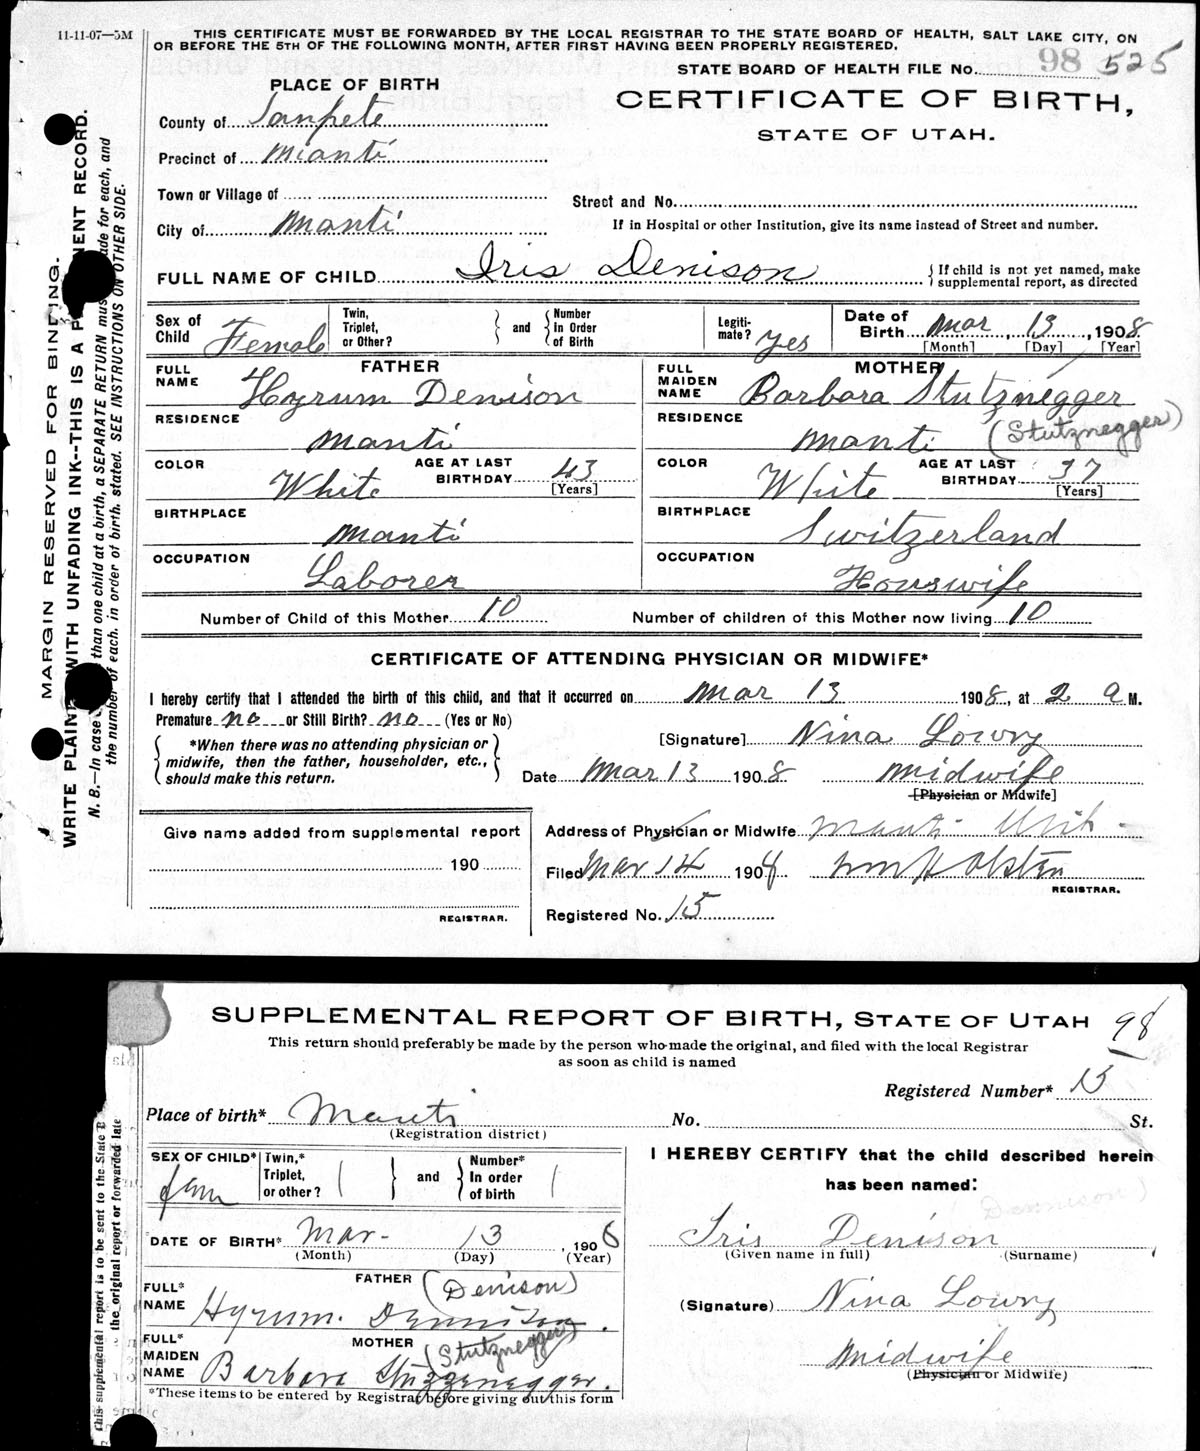 11-11-07—5M
THIS CERTIFICATE MUST BE FORWARDED BY THE LOCAL REGISTRAR TO THE STATE BOARD OF HEALTH, SALT LAKE CITY, ON
OR BEFORE THE 5TH OF THE FOLLOWING MONTH, AFTER FIRST HAVING BEEN PROPERLY REGISTERED.
STATE BOARD OF HEALTH FILE No. 98 525
CERTIFICATE OF BIRTH,
STATE OF UTAH.
PLACE OF BIRTH
County of Sanpete
Precinct of Mianti
Town or Village of
City of Manti
Street and No.
If in Hospital or other Institution, give its name instead of Street and number.
FULL NAME OF CHILD Iris Denison
If child is not yet named, make
supplemental report, as directed
Sex of Child Female
Twin, Triplet, or Other? and Number in Order of Birth
Legiti-mate? Yes
Date of Birth Mar, 13, 1908
[Month] [Day] [Year]
FATHER
FULL NAME Hyrum Denison
RESIDENCE Manti
COLOR White AGE AT LAST BIRTHDAY 43 [Years]
BIRTHPLACE Manti
OCCUPATION Laborer
MOTHER
FULL MAIDEN NAME Barbara Stutznegger
RESIDENCE Manti (Stutznegger)
COLOR White AGE AT LAST BIRTHDAY 37 [Years]
BIRTHPLACE Switzerland
OCCUPATION Houswife
Number of Child of this Mother 10 Number of children of this Mother now living 10
CERTIFICATE OF ATTENDING PHYSICIAN OR MIDWIFE*
I hereby certify that I attended the birth of this child, and that it occurred on Mar 13 1908, at 2 a M.
Premature no or Still Birth? no (Yes or No)
*When there was no attending physician or
midwife, then the father, householder, etc.,
should make this return.
[Signature] Nina Lowry
Date Mar 13 1908 Midwife
[Physician or Midwife]
Give name added from supplemental report
190
REGISTRAR.
Address of Physician or Midwife Manti Utah
Filed Mar 14 190 Wm H Olsten
REGISTRAR.
Registered No. 15
MARGIN RESERVED FOR BINDING.
WRITE PLAINLY WITH UNFADING INK--THIS IS A PERMANENT RECORD.
N. B.—In case than one child at a birth, a SEPARATE RETURN must made for each, and
the number of each, in order of birth, stated. SEE INSTRUCTIONS ON OTHER SIDE.
SUPPLEMENTAL REPORT OF BIRTH, STATE OF UTAH 98
This return should preferably be made by the person who made the original, and filed with the local Registrar
as soon as child is named
Registered Number* 15
Place of birth* Manti No. St.
(Registration district)
SEX OF CHILD* fem
Twin,* Triplet, or other? and Number* In order of birth
DATE OF BIRTH* Mar- 13, 1908
(Month) (Day) (Year)
FATHER (Denison)
FULL* NAME Hyrum. Dennison.
MOTHER (Stutznegger)
FULL* MAIDEN NAME Barbara Stuzzenegger.
*These items to be entered by Registrar before giving out this form
I HEREBY CERTIFY that the child described herein
has been named:
Dennison)
Iris Denison
(Given name in full) (Surname)
(Signature) Nina Lowry
Midwife
(Physician or Midwife)
This supplemental report is to be sent to the State B
the original report or forwarded late